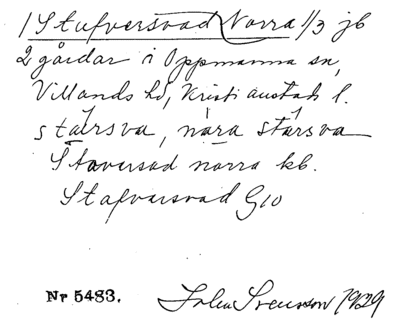 1 Stafversvad Norra 1/3 jb
2 gårdar i Oppmanna sn,
Villands hd, Kristianstads l.
stársva, nára stársva
Staversvad norra kb.
Stafvarsvad G10
Nr 5483. John Svensson 1929